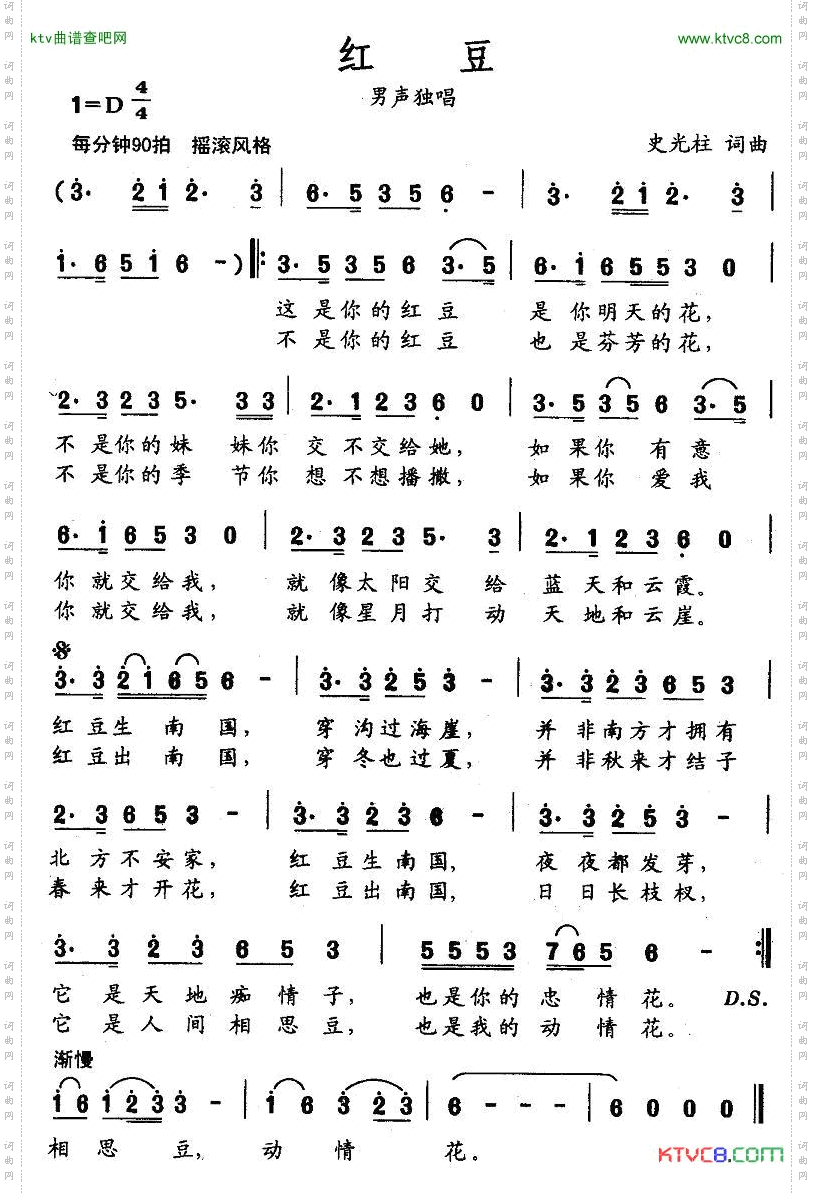 ktv曲谱查吧网
www.ktvc8.com
红 豆
男声独唱
1=D 4/4
每分钟90拍 摇滚风格
史光柱 词曲
(3· 2 1 2· 3 | 6· 5 3 5 6 - | 3· 2 1 2· 3 |
1· 6 5 1 6 - ) |: 3· 5 3 5 6 3· 5 | 6· 1 6 5 5 3 0 |
这是你的红豆 是你明天的花,
不是你的红豆 也是芬芳的花,
2· 3 2 3 5· 3 3 | 2· 1 2 3 6 0 | 3· 5 3 5 6 3· 5 |
不是你的妹 妹你 交不交给她, 如果你 有意
不是你的季 节你 想不想播撒, 如果你 爱我
6· 1 6 5 3 0 | 2· 3 2 3 5· 3 | 2· 1 2 3 6 0 |
你就交给我, 就像太阳交 给 蓝天和云霞。
你就交给我, 就像星月打 动 天地和云崖。
3· 3 2 1 6 5 6 - | 3· 3 2 5 3 - | 3· 3 2 3 6 5 3 |
红豆生 南 国, 穿沟过海崖, 并非南方才拥有
红豆出 南 国, 穿冬也过夏, 并非秋来才结子
2· 3 6 5 3 - | 3· 3 2 3 6 - | 3· 3 2 5 3 - |
北方不安家, 红豆生南国, 夜夜都发芽,
春来才开花, 红豆出南国, 日日长枝杈,
3· 3 2 3 6 5 3 | 5 5 5 3 7 6 5 6 - :|
它是天地痴情子, 也是你的忠情花。 D.S.
它是人间相思豆, 也是我的动情花。
渐慢
1 6 1 2 3 3 - | 2 1 2 3 2 3 | 6 - - - | 6 0 0 0 |
相思 豆, 动 情 花。
KTVC8.com
词曲网